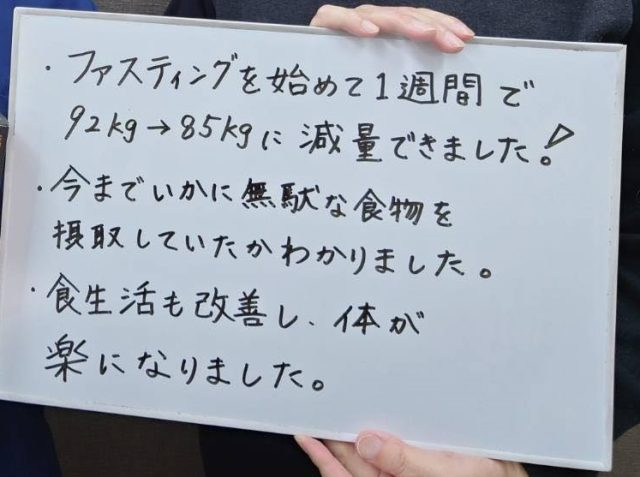 ・ファスティングを始めて1週間で
92kg→85kgに減量できました!
・今までいかに無駄な食物を
摂取していたかわかりました。
・食生活も改善し、体が
楽になりました。